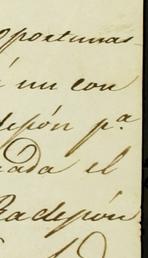 oportunas
á un con
desón pª
nada el
Radesón